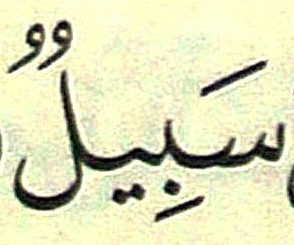 سَبِيلٌ